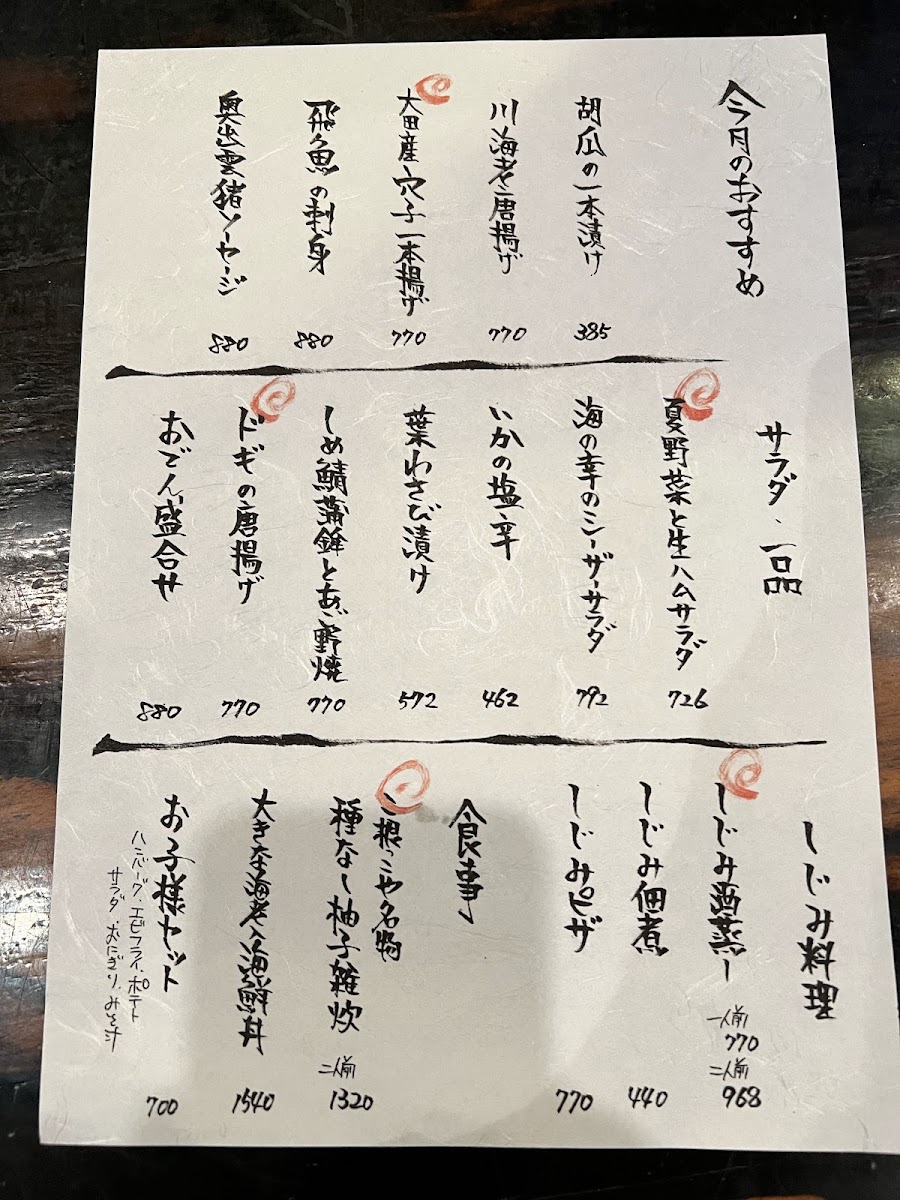 今月のおすすめ
胡瓜の一本漬け
385
川海老唐揚げ
770
大田産穴子一本揚げ
770
飛魚の刺身
880
奥出雲猪ソーセージ
880
サラダ、一品
夏野菜と生ハムサラダ
726
海の幸のシーザーサラダ
792
いかの塩辛
462
葉わさび漬け
572
しめ鯖蒲鉾とあご野焼
770
ドギの唐揚げ
770
おでん盛合せ
880
しじみ料理
しじみ酒蒸し
一人前
770
二人前
968
しじみ佃煮
440
しじみピザ
770
食事
根っこや名物
種なし柚子雑炊
二人前
1320
大きな海老入海鮮丼
1540
お子様セット
ハンバーグ、エビフライ、ポテト
サラダ、おにぎり、みそ汁
700